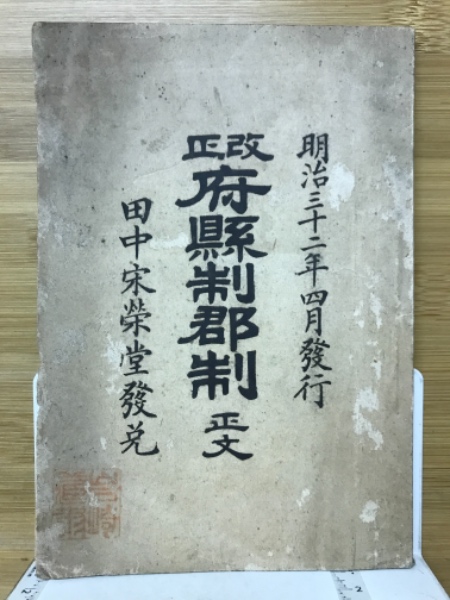 明治三十二年四月發行
改正
府縣制郡制 正文
田中宋榮堂發兌